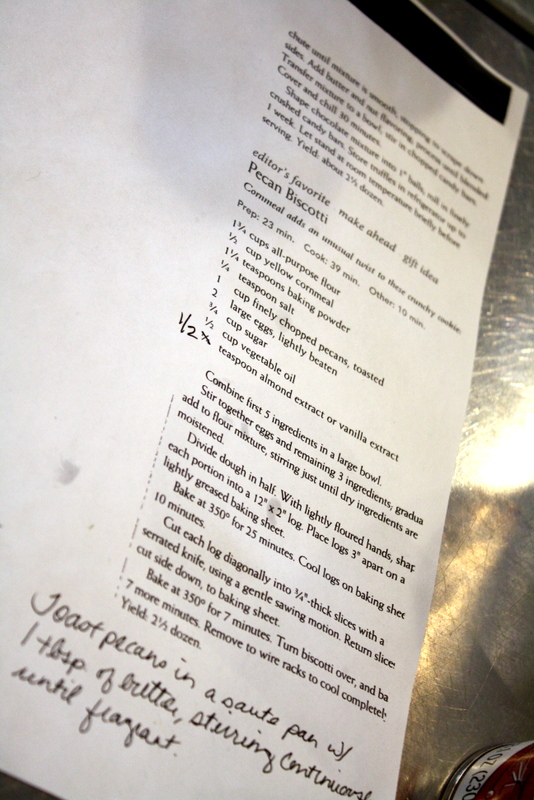 chute until mixture is smooth, stopping to scrape down
sides. Add butter and nut flavoring; process until blended.
Transfer mixture to a bowl, stir in chopped candy bars.
Cover and chill 30 minutes.
Shape chocolate mixture into 1" balls, roll in finely
crushed candy bars. Store truffles in refrigerator up to
1 week. Let stand at room temperature briefly before
serving. Yield: about 2½ dozen.
editor's favorite make ahead gift idea
Pecan Biscotti
Cornmeal adds an unusual twist to these crunchy cookie
Prep: 23 min. Cook: 39 min. Other: 10 min.
1¾ cups all-purpose flour
½ cup yellow cornmeal
1¼ teaspoons baking powder
¼ teaspoon salt
1 cup finely chopped pecans, toasted
2 large eggs, lightly beaten
¾ cup sugar
½ cup vegetable oil
1/2 x teaspoon almond extract or vanilla extract
Combine first 5 ingredients in a large bowl.
Stir together eggs and remaining 3 ingredients, gradua
add to flour mixture, stirring just until dry ingredients are
moistened.
Divide dough in half. With lightly floured hands, shap
each portion into a 12" x 2" log. Place logs 3" apart on a
lightly greased baking sheet.
Bake at 350° for 25 minutes. Cool logs on baking shee
10 minutes.
Cut each log diagonally into ¾"-thick slices with a
serrated knife, using a gentle sawing motion. Return slice
cut side down, to baking sheet.
Bake at 350° for 7 minutes. Turn biscotti over, and ba
7 more minutes. Remove to wire racks to cool complete
Yield: 2⅓ dozen.
Toast pecans in a saute pan w/
1 tbsp. of butter, sterring continuous
until fragrant.
OZ (230